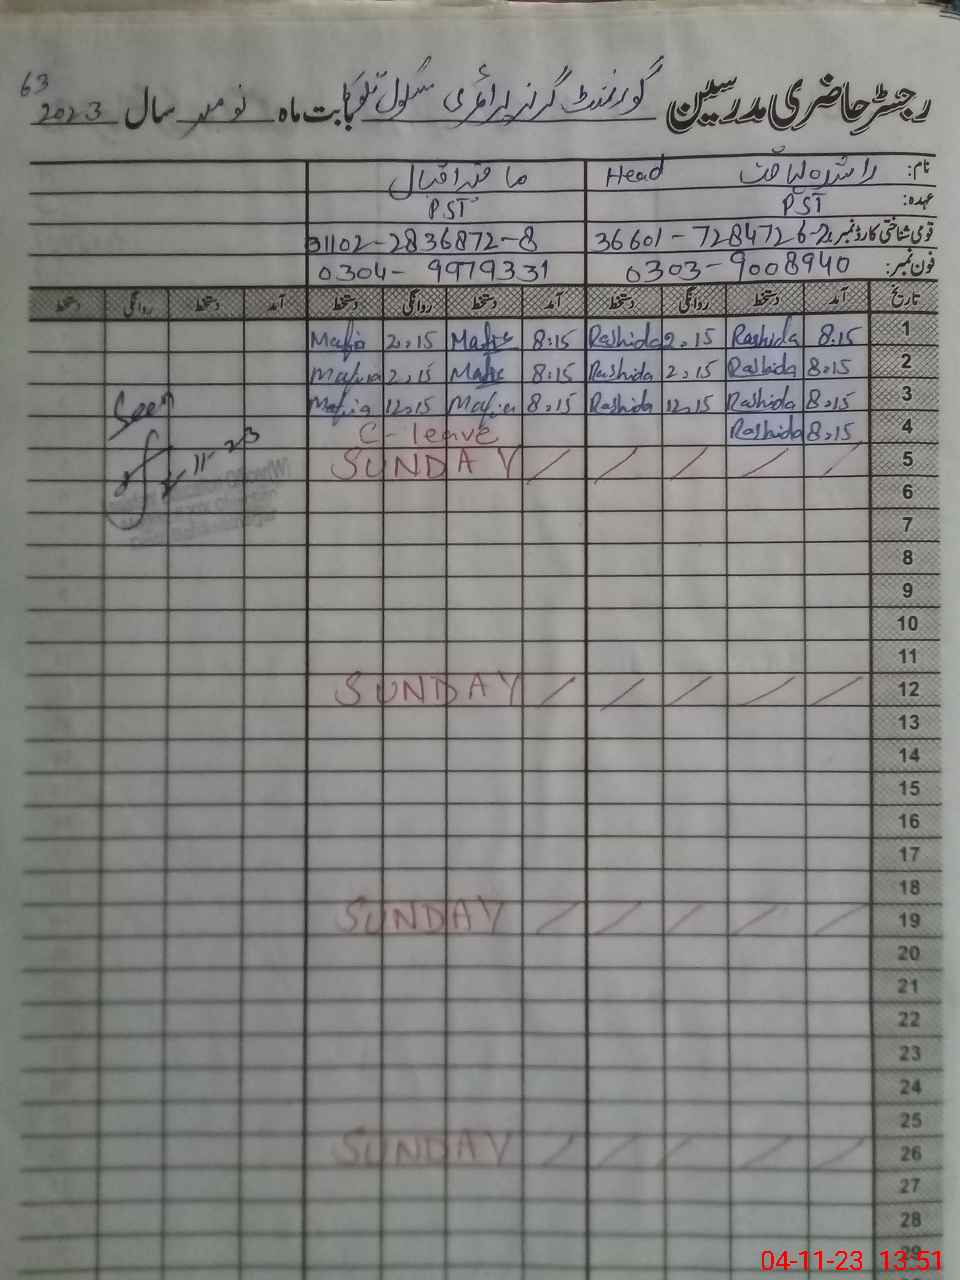 63
رجسٹر حاضری مدرسین گورنمنٹ گرلز پرائمری سکول بابت ماہ نومبر سال 2023
نام: راشدہ لیاقت Head ما فیہ اقبال
عہدہ: PST PST
قومی شناختی کارڈ نمبر: 36601-7284726-2 31102-2836872-8
فون نمبر: 0303-9008940 0304-9979331
تاریخ آمد دستخط روانگی دستخط آمد دستخط روانگی دستخط آمد دستخط روانگی دستخط
1 8:15 Rashida 2.15 Rashida 8:15 2.15
2 8:15 Rashida 2.15 Rashida 8:15 2.15
3 8:15 Rashida 12.15 Rashida 8:15 Mafia 12.15 Mafia
4 8:15 Rashida C-leave
Seen
5 SUNDAY
11-23
6
7
8
9
10
11
12 SUNDAY
13
14
15
16
17
18
19 SUNDAY
20
21
22
23
24
25
26 SUNDAY
27
28
29
04-11-23 13:51